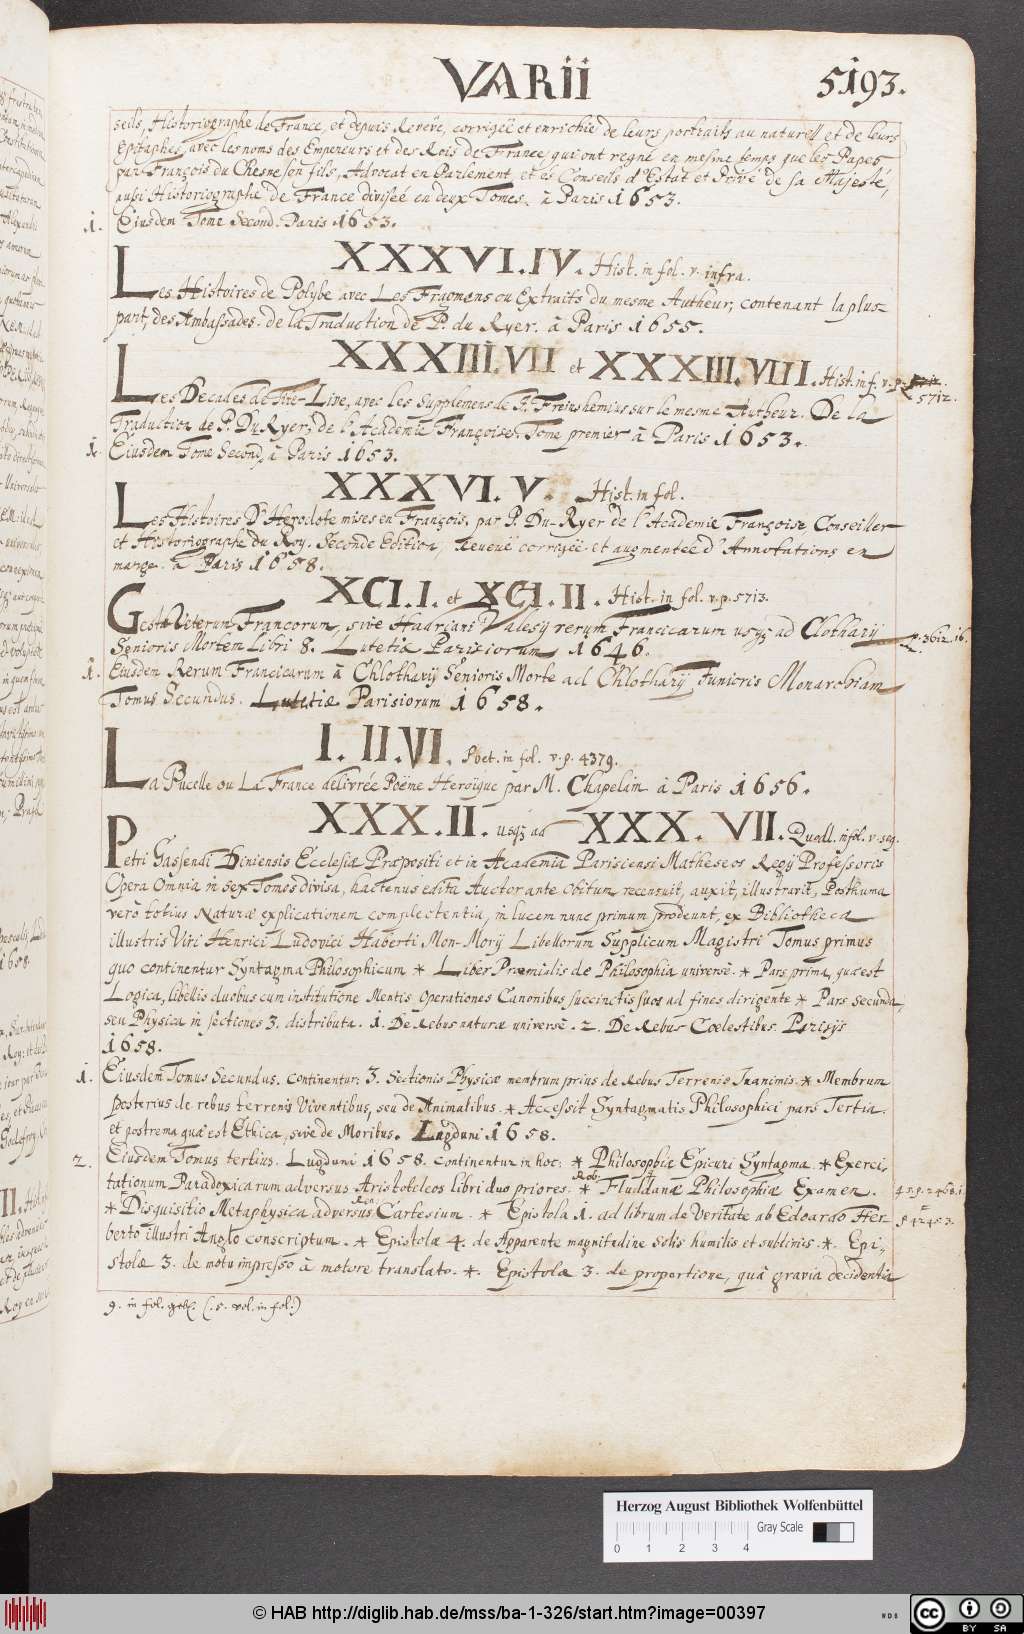 VARII
5193.
seils, Historiographe de France, et depuis Reveüe, corrigeë et enrichie de leurs portraits au naturell et de leurs
Epitaphes, avec les noms des Empereurs et des Rois de France, qui ont regné en mesme temps que les Papes
par François du Chesne son fils, Advocat en Parlement et es Conseils d'Estat et Privé de sa Majesté,
aussi Historiographe de France diviseé en deux Tomes. à Paris 1653.
1. Eiusdem Tome Second. Paris 1653.
XXXVI.IV. Hist. in fol. v. infra.
Les Histoires de Polybe avec Les Fragmens ou Extraits du mesme Autheur, contenant la plus
part, des Ambassades. de la Traduction de P. du Ryer. à Paris 1655.
XXXIII.VII et XXXIII.VIII. Hist. in f. v. p. 5712.
5712.
Les Decades de Tite-Live, avec les Supplemens de J. Freinshemius sur le mesme Autheur. De la
Traduction de P. Du Ryer, de l'Academie Françoise. Tome premier à Paris 1653.
1. Eiusdem Tome Second, à Paris 1653.
XXXVI. V. Hist. in fol.
Les Histoires D'Herodote mises en François. par P. Du-Ryer de l'Academie Françoise Conseiller
et Historiographe du Roy. Seconde Edition, Reveuë corrigeë et augmenteé d'Annotations en
marge. à Paris 1658.
XCI.I. et XCI.II. Hist. in fol. v. p. 5713.
Gesta Veterum Francorum, sive Hadriani Valesij rerum Francicarum usq3 ad Clotharij
Senioris Mortem Libri 8. Lutetiæ Parisiorum 1646.
p. 3612. 16.
1. Eiusdem Rerum Francicarum à Chlotharij Senioris Morte ad Chlotharij Iunioris Monarchiam
Tomus Secundus. Lutetiæ Parisiorum 1658.
I. II. VI. Poet. in fol. v. p. 4379.
La Pucelle ou La France delivrée Poëme Heroïque par M. Chapelain à Paris 1656.
XXX.II. usq3 ad XXX. VII. Quodl. in fol. v. seq.
Petri Gassendi Diniensis Ecclesiæ Præpositi et in Academia Parisiensi Matheseos Regij Professoris
Opera Omnia in sex Tomos divisa, hactenus edita Auctor ante obitum recensuit, auxit, illustravit, Posthuma
verò totius Naturæ explicationem complectentia, in lucem nunc primum prodeunt, ex Bibliotheca
illustris Viri Henrici Ludovici Haberti Mon-Morij Libellorum Supplicum Magistri Tomus primus
quo continentur Syntagma Philosophicum * Liber Proœmialis de Philosophia universè. * Pars prima, quæ est
Logica, libellis duobus cum institutione Mentis Operationes Canonibus succinctis suos ad fines dirigente * Pars secunda,
seu Physica in sectiones 3. distributa. 1. De Rebus naturæ universè. 2. De Rebus Cœlestibus Parisijs
1658.
1. Eiusdem Tomus Secundus. continentur: 3. Sectionis Physicæ membrum prius de Rebus Terrenis Inanimis. * Membrum
posterius de rebus terrenis Viventibus, seu de Animalibus. * Accessit Syntagmatis Philosophici pars Tertia
et postrema quæ est Ethica, sive de Moribus. Lugduni 1658.
2. Eiusdem Tomus tertius. Lugduni 1658. continentur in hoc: * Philosophiæ Epicuri Syntagma. * Exerci-
tationum Paradoxicarum adversus Aristoteleos libri duo priores. * Rob. Fluddanæ Philosophiæ Examen.
4. s. p. 2468. 1.
* Disquisitio Metaphysica adversus Ren. Cartesium. * Epistola 1. ad librum de Veritate ab Edoardo Her-
p. 4253.
berto illustri Anglo conscriptum. * Epistolæ 4. de Apparente magnitudine solis humilis et sublimis. *. Epi-
stolæ 3. de motu impresso à motore translato. *. Epistolæ 3. de proportione, quâ gravia decidentia
9. in fol. (. 5. vol. in fol.)
Herzog August Bibliothek Wolfenbüttel
Gray Scale
0 1 2 3 4
© HAB http://diglib.hab.de/mss/ba-1-326/start.htm?image=00397
WDB
cc BY SA